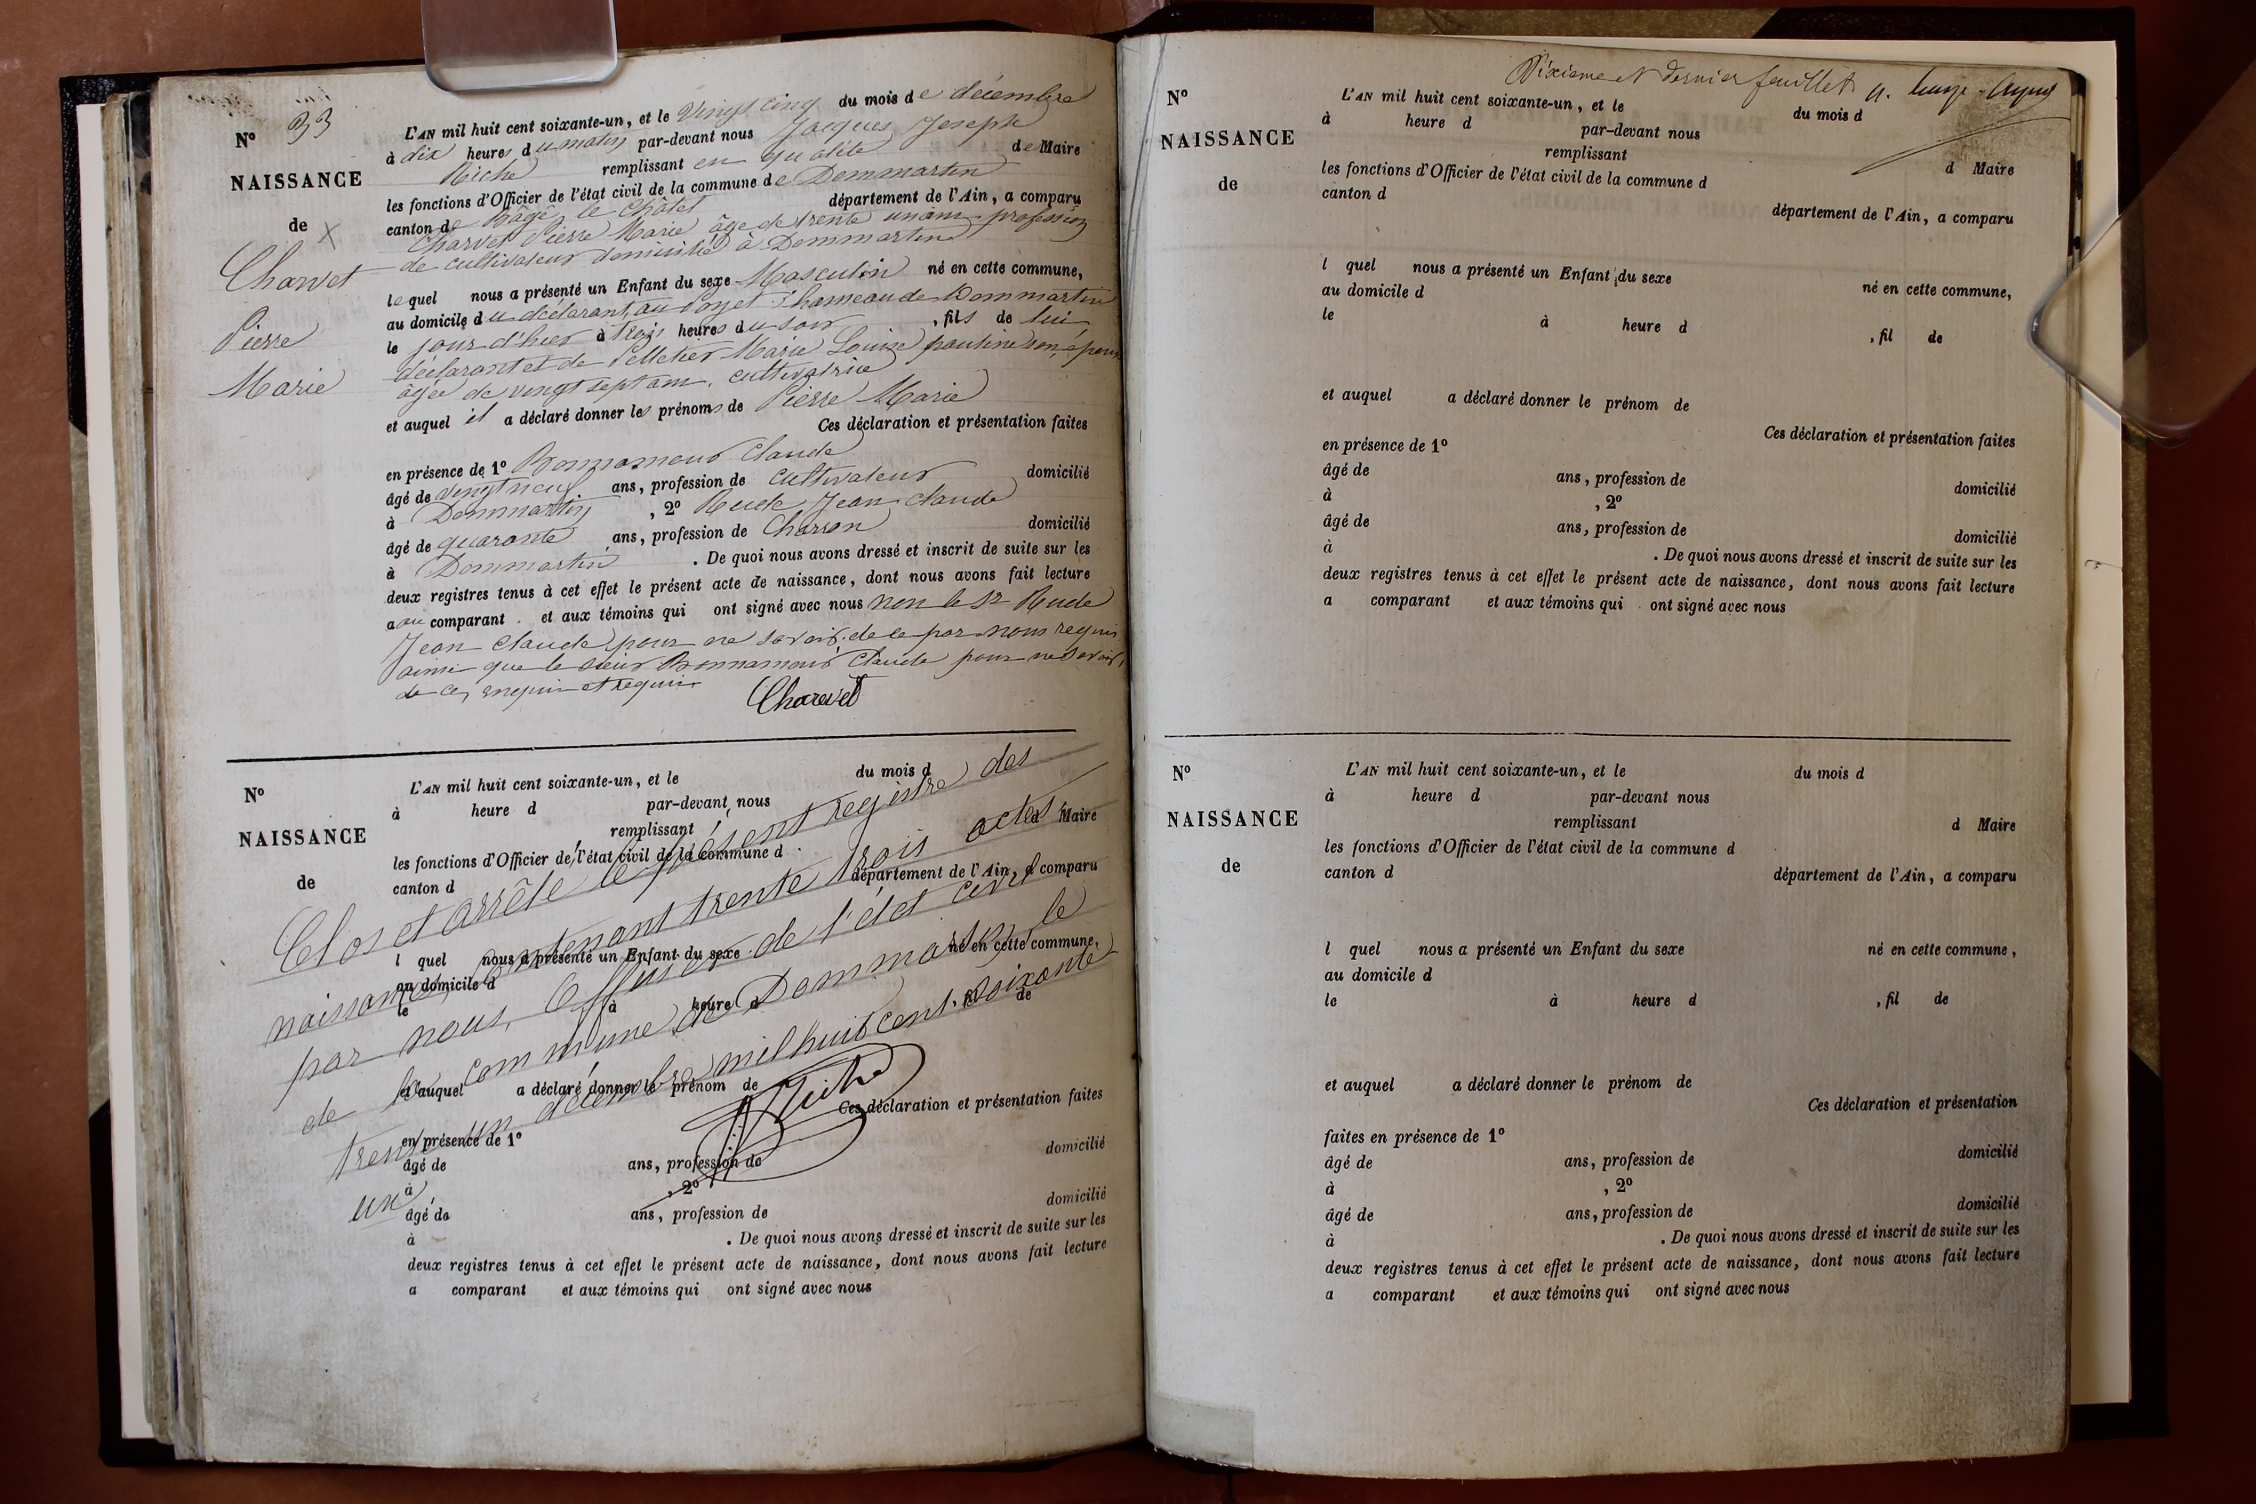 N° 33
NAISSANCE
de
Charvet
Pierre
Marie
L'AN mil huit cent soixante-un, et le Vingt cinq du mois de décembre
à dix heures du matin par-devant nous Jacques Joseph
Riche remplissant en qualité de Maire
les fonctions d'Officier de l'état civil de la commune de Dommartin
canton de Bâgé le Châtel département de l'Ain, a comparu
Charvet Pierre Marie âgé de trente un ans profession
de cultivateur domicilié à Dommartin
lequel nous a présenté un Enfant du sexe Masculin né en cette commune,
au domicile du déclarant, au hameau de Dommartin
le jour d'hier à trois heures du soir, fils de lui
déclarant et de Pelletier Marie Louise pauline son épouse
âgée de vingt sept ans, cultivatrice
et auquel il a déclaré donner les prénoms de Pierre Marie
Ces déclaration et présentation faites
en présence de 1° Bonnamour Claude
âgé de vingt neuf ans, profession de cultivateur domicilié
à Dommartin, 2° Rude Jean Claude
âgé de quarante ans, profession de Charron domicilié
à Dommartin. De quoi nous avons dressé et inscrit de suite sur les
deux registres tenus à cet effet le présent acte de naissance, dont nous avons fait lecture
a au comparant et aux témoins qui ont signé avec nous non le Sr Rude
Jean Claude pour ne savoir, de ce par nous requis
ainsi que le sieur Bonnamour Claude pour ne savoir,
de ce, enquis et requis
Charvet
N°
NAISSANCE
de
L'AN mil huit cent soixante-un, et le du mois d
à heure d par-devant nous
remplissant d Maire
les fonctions d'Officier de l'état civil de la commune d
canton d département de l'Ain, a comparu
l quel nous a présenté un Enfant du sexe né en cette commune,
au domicile d
le à heure d, fil de
et auquel a déclaré donner le prénom de
Ces déclaration et présentation faites
en présence de 1°
âgé de ans, profession de domicilié
à, 2°
âgé de ans, profession de domicilié
à. De quoi nous avons dressé et inscrit de suite sur les
deux registres tenus à cet effet le présent acte de naissance, dont nous avons fait lecture
a comparant et aux témoins qui ont signé avec nous
Clos et arrêté le présent registre des
naissances contenant trente trois actes
par nous, Officier de l'état civil
de la commune de Dommartin, le
trente un décembre mil huit cent soixante
un
Riche
Dixième et dernier feuillet
N°
NAISSANCE
de
L'AN mil huit cent soixante-un, et le du mois d
à heure d par-devant nous
remplissant d Maire
les fonctions d'Officier de l'état civil de la commune d
canton d département de l'Ain, a comparu
l quel nous a présenté un Enfant du sexe né en cette commune,
au domicile d
le à heure d, fil de
et auquel a déclaré donner le prénom de
Ces déclaration et présentation faites
en présence de 1°
âgé de ans, profession de domicilié
à, 2°
âgé de ans, profession de domicilié
à. De quoi nous avons dressé et inscrit de suite sur les
deux registres tenus à cet effet le présent acte de naissance, dont nous avons fait lecture
a comparant et aux témoins qui ont signé avec nous
N°
NAISSANCE
de
L'AN mil huit cent soixante-un, et le du mois d
à heure d par-devant nous
remplissant d Maire
les fonctions d'Officier de l'état civil de la commune d
canton d département de l'Ain, a comparu
l quel nous a présenté un Enfant du sexe né en cette commune,
au domicile d
le à heure d, fil de
et auquel a déclaré donner le prénom de
Ces déclaration et présentation
faites en présence de 1°
âgé de ans, profession de domicilié
à, 2°
âgé de ans, profession de domicilié
à. De quoi nous avons dressé et inscrit de suite sur les
deux registres tenus à cet effet le présent acte de naissance, dont nous avons fait lecture
a comparant et aux témoins qui ont signé avec nous